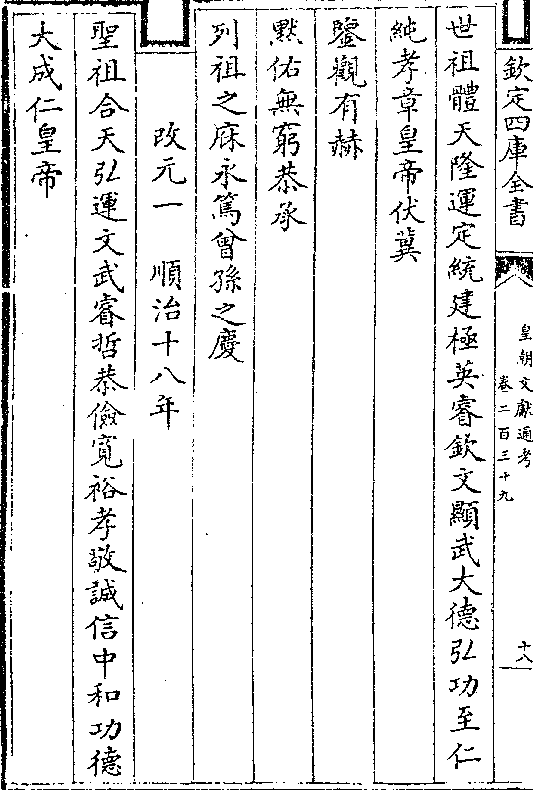 欽定四庫全書
皇朝文獻通考
卷二百三十九
十八
世祖體天隆運定統建極英睿欽文顯武大德弘功至仁
純孝章皇帝伏冀
鑒觀有赫
黙佑無窮恭承
列祖之庥永篤曾孫之慶
改元一　順治十八年
聖祖合天弘運文武睿哲恭儉寛裕孝敬誠信中和功德
大成仁皇帝